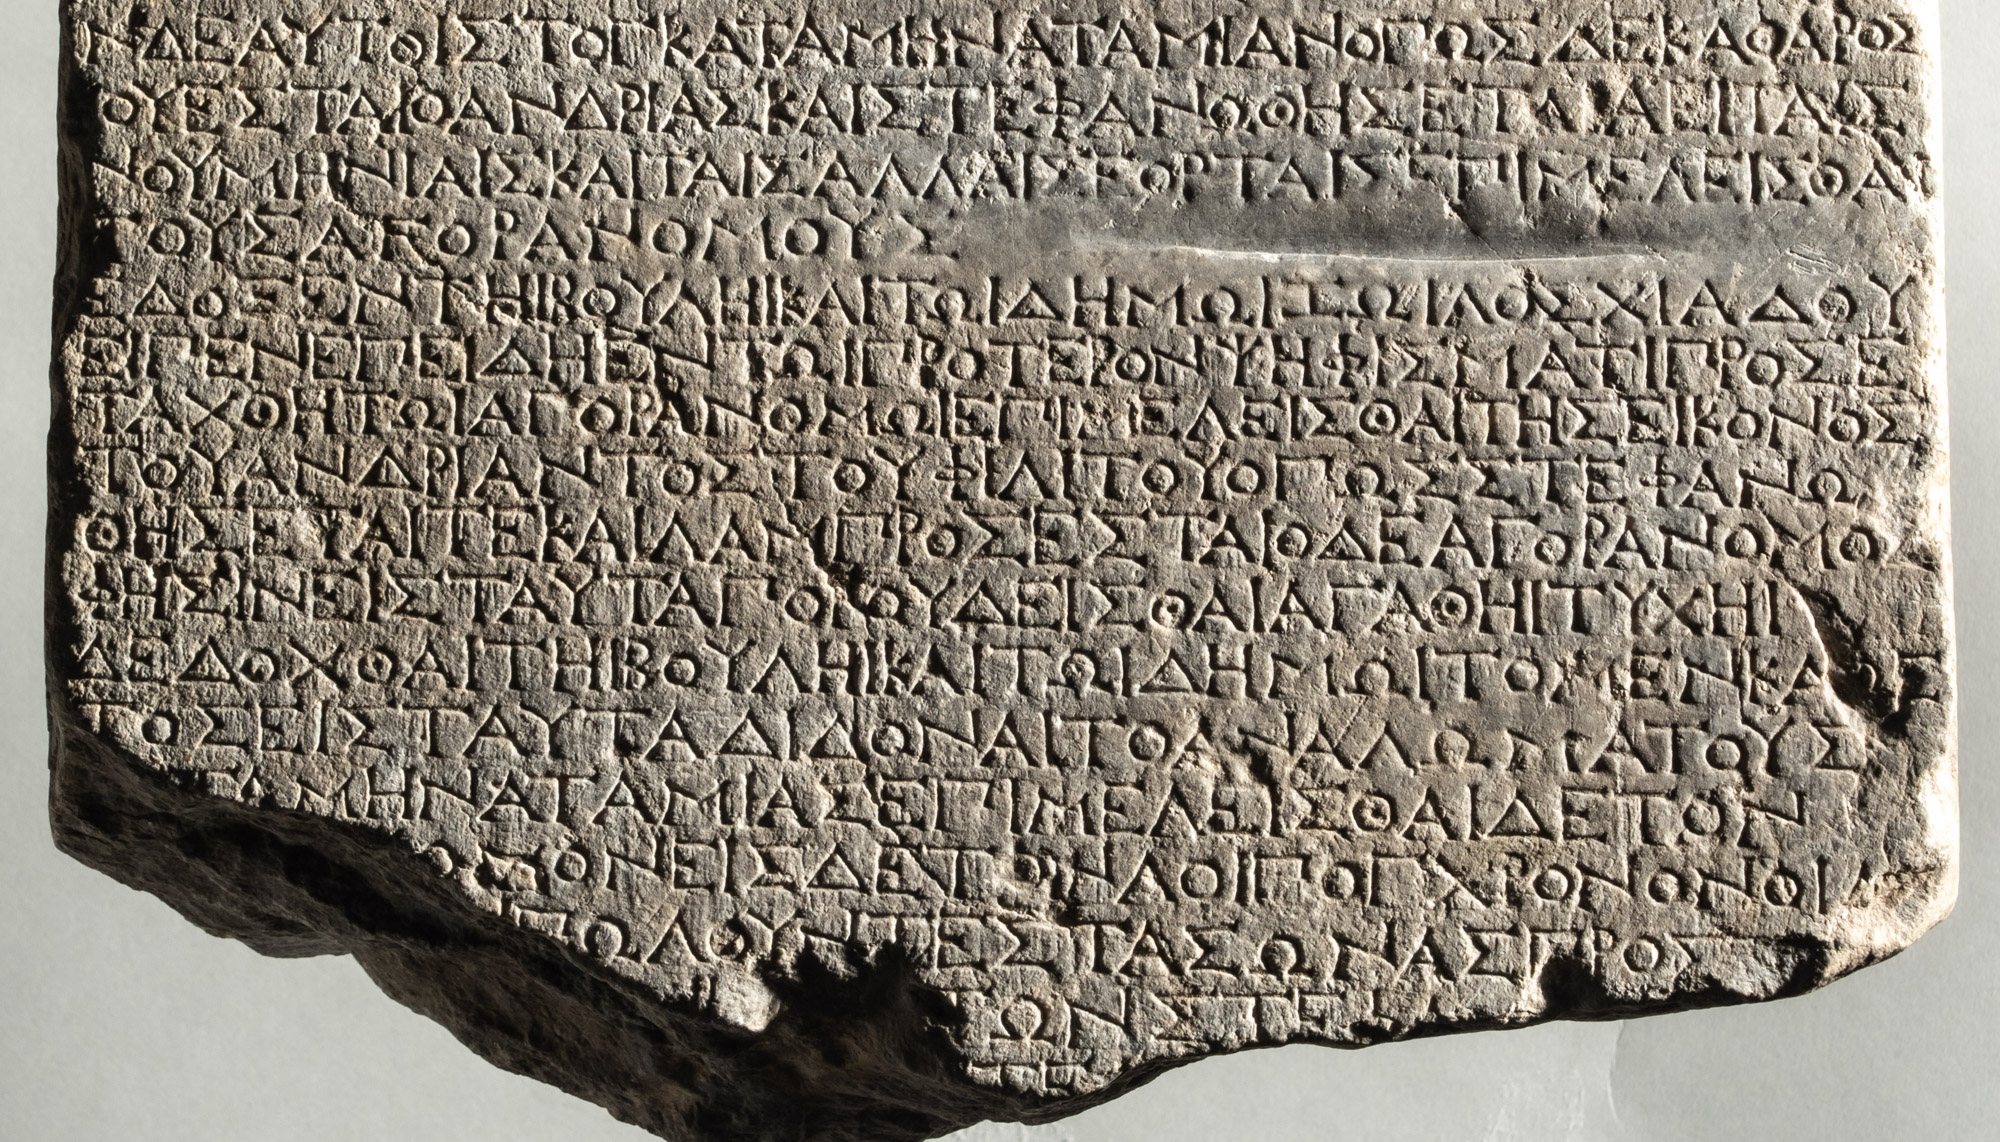 ΝΔΕΑΥΤΟΙΣΤΟΓΚΑΤΑΜΗΝΑΤΑΜΙΑΝΟΠΩΣΔΕΚΑΘΑΡΟΣ
ΟΥΕΣΤΑΙΟΑΝΔΡΙΑΣΚΑΙΣΤΕΦΑΝΩΘΗΣΕΤΑΙΑΕΙΤΑΙΣ
ΝΟΥΜΗΝΙΑΙΣΚΑΙΤΑΙΣΑΛΛΑΙΣΕΟΡΤΑΙΣΕΠΙΜΕΛΕΙΣΘΑΙ
ΤΟΥΣΑΓΟΡΑΝΟΜΟΥΣ
ΕΔΟΞΕΝΤΗΙΒΟΥΛΗΙΚΑΙΤΩΙΔΗΜΩΙΖΩΙΛΟΣΧΙΑΔΟΥ
ΕΙΠΕΝΕΠΕΙΔΗΕΝΤΩΙΠΡΟΤΕΡΟΝΨΗΦΙΣΜΑΤΙΠΡΟΣΕ
ΤΑΧΘΗΤΩΙΑΓΟΡΑΝΟΜΩΙΕΠΙΜΕΛΕΙΣΘΑΙΤΗΣΕΙΚΟΝΟΣ
ΤΟΥΑΝΔΡΙΑΝΤΟΣΤΟΥΦΙΛΙΤΟΥΟΠΩΣΣΤΕΦΑΝΩ
ΘΗΣΕΤΑΙΤΕΚΑΙΛΑΜΠΡΟΣΕΣΤΑΙΟΔΕΑΓΟΡΑΝΟΜΟΣ
ΦΗΣΙΝΕΙΣΤΑΥΤΑΠΟΡΟΥΔΕΙΣΘΑΙΑΓΑΘΗΙΤΥΧΗΙ
ΔΕΔΟΧΘΑΙΤΗΙΒΟΥΛΗΙΚΑΙΤΩΙΔΗΜΩΙΤΟΜΕΝΕΝΙΑΥ
ΤΟΣΕΙΣΤΑΥΤΑΔΙΔΟΝΑΙΤΟΑΝΑΛΩΜΑΤΟΥΣ
ΚΑΤΑΜΗΝΑΤΑΜΙΑΣΕΠΙΜΕΛΕΙΣΘΑΙΔΕΤΟΝ
ΟΝΕΙΣΔΕΤΟΝΛΟΙΠΟΓΧΡΟΝΟΝΟΙΑ
ΠΩΛΟΥΝΤΕΣΤΑΣΩΝΑΣΠΡΟΣ
ΩΝΣΤΕ